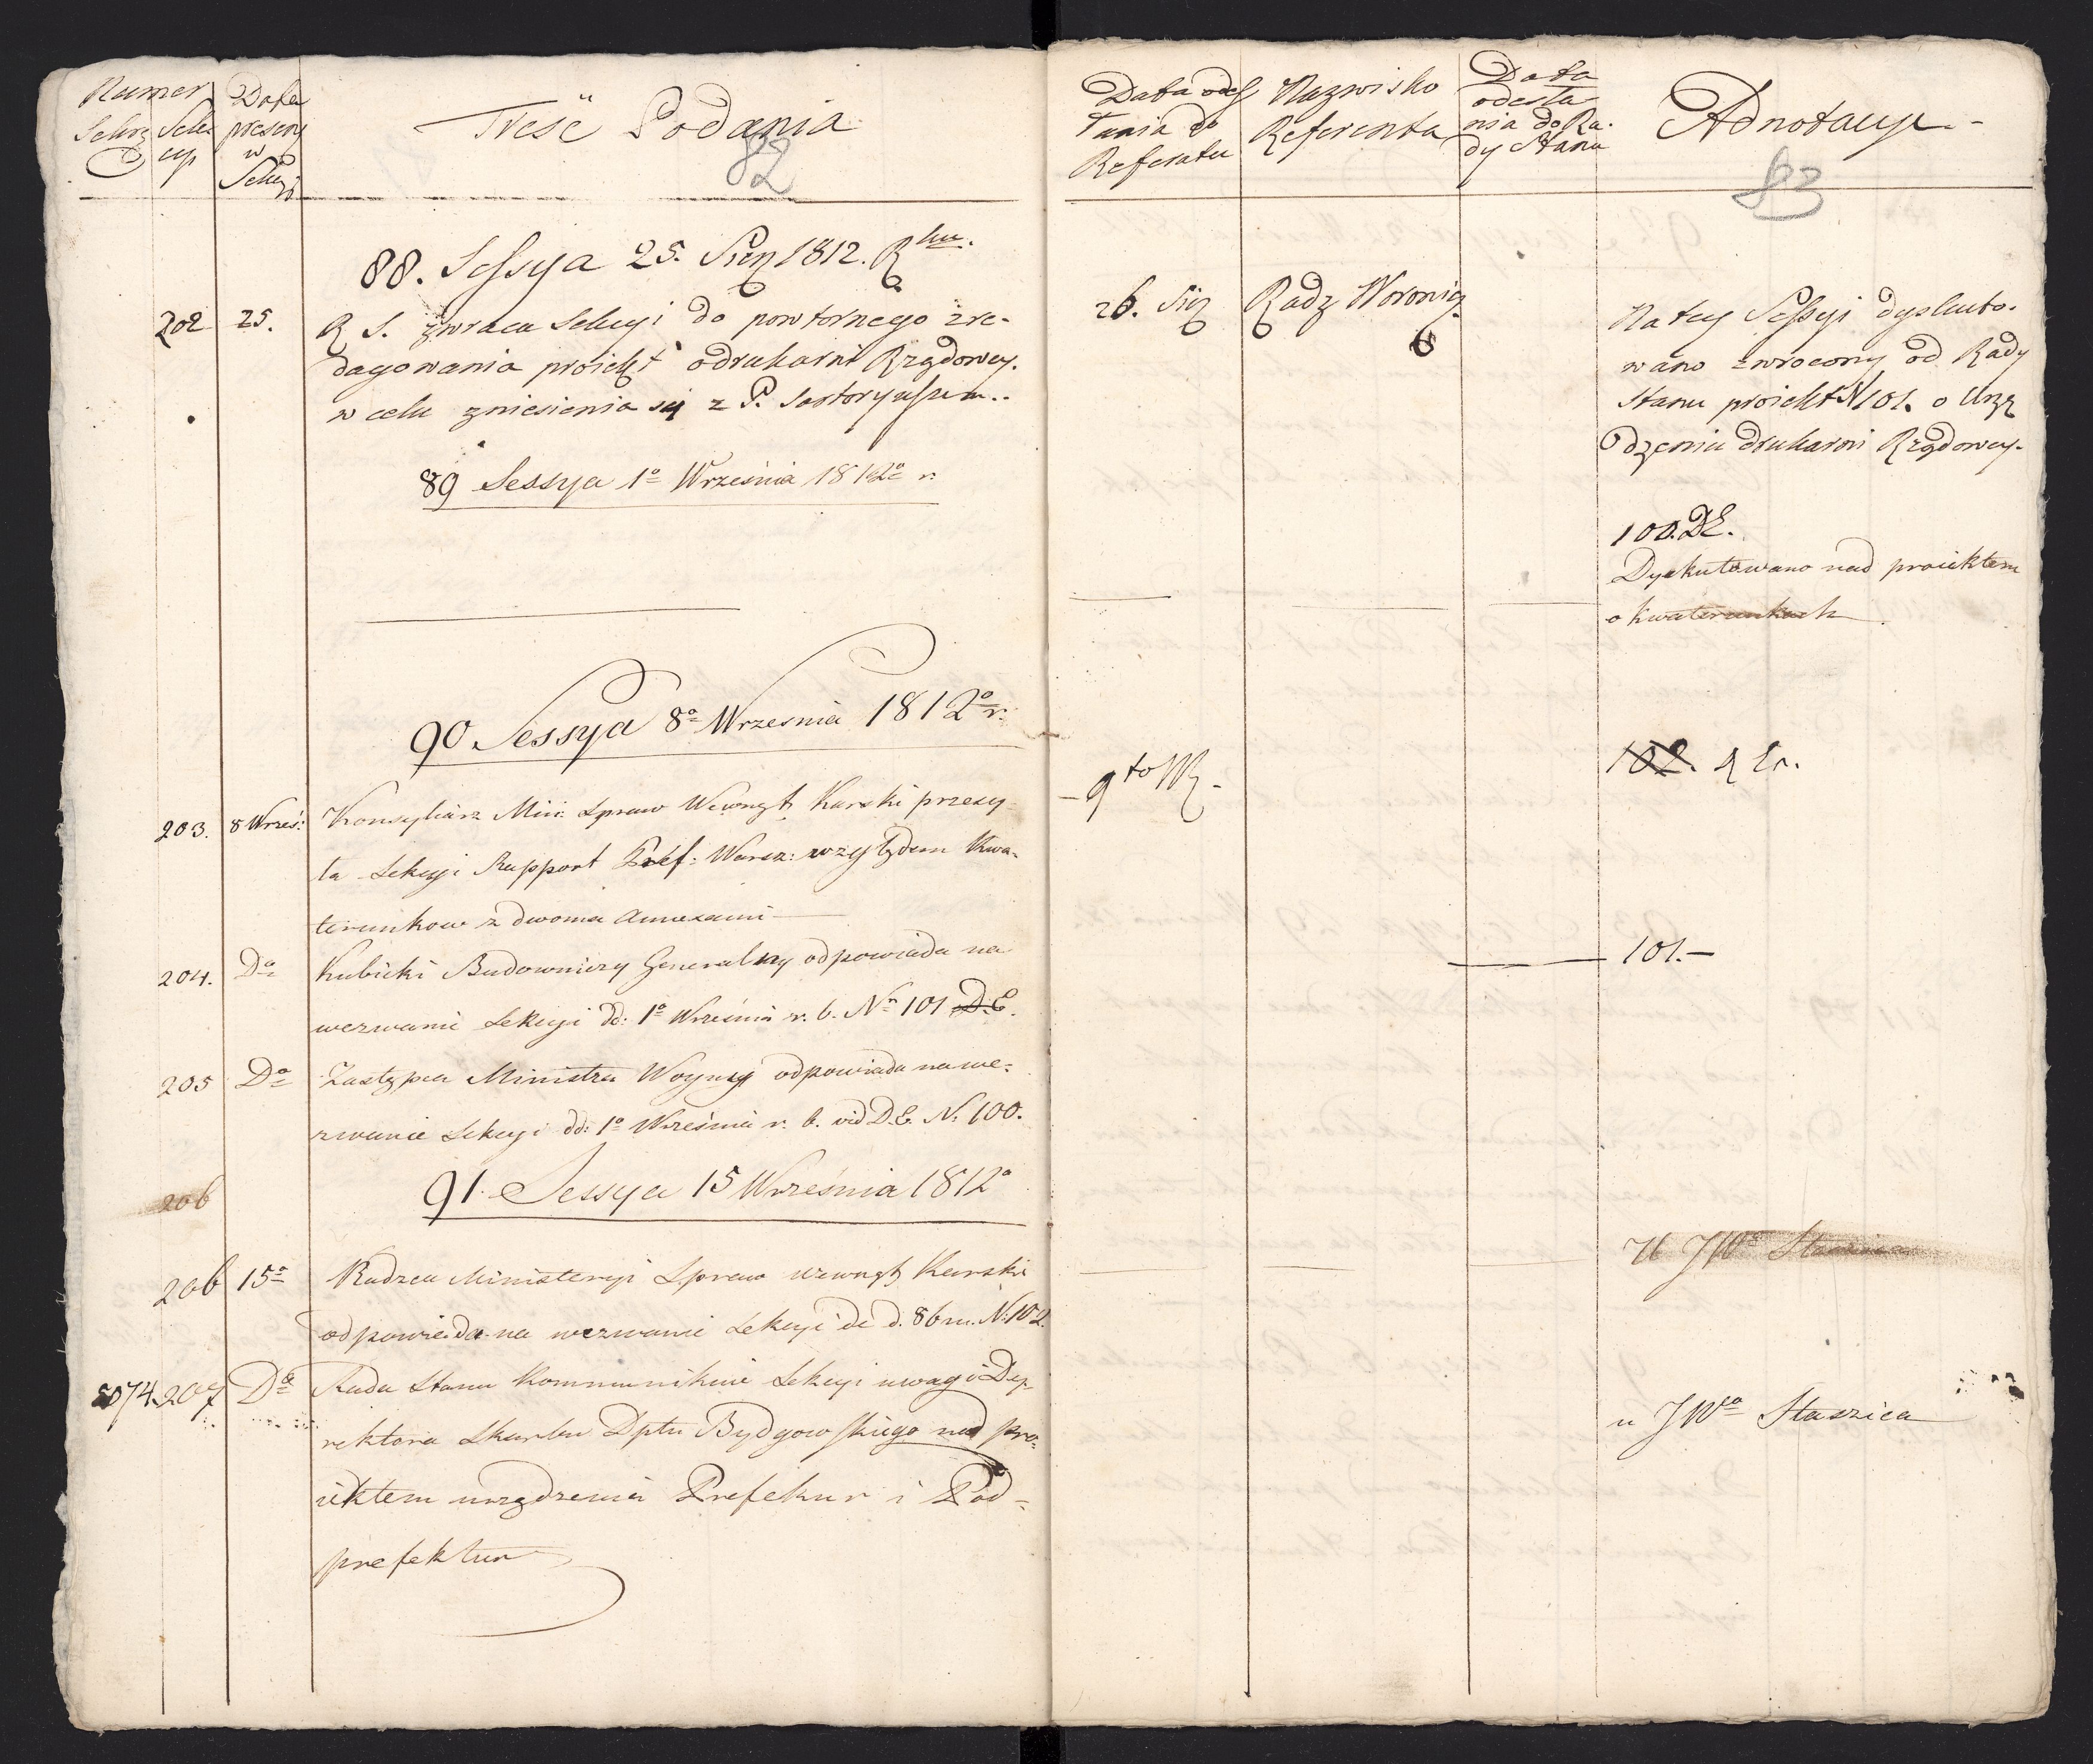 Numer
Sekre Sek
cyi
Data
prezen
w
Sekcyi
Treść Podania
82
88. Sessya 25. Sier 1812. Rku.
202 25. R S. zwraca Sekcyi do powtornego zre-
dagowania proiekt o drukarni Rządowey.
w celu zniesienia się z P. Sartoryuszem..
89 Sessya 1o Września 1812o r.
90 Sessya 8o Wrzesnia 1812o r.
203. 8 Wrześ: Konsyliarz Min: Spraw Wewnęt Karski przesy-
ła Sekcyi Rapport Pref: Warsz: względem Kwa-
terunkow z dwoma Annexami
204. Do Kubicki Budowniczy Generalny odpowiada na
wezwanie Sekcyi dd: 1o Wrześnie r. b. Nro 101 D.E.
205 Do Zastępca Ministra Woyny odpowiada na we-
zwanie Sekcyi dd: 1o Wrześnie r. b. vid D.E. N: 100.
206
91. Sessya 15 Września 1812o
206 15o Radzca Ministeryi Spraw wewnęt Karski
odpowiada na wezwanie Sekcyi de d. 8 b m. N. 102
5074 207 Do Rada Stanu Kommunikuie Sekcyi uwagi Dy-
rektora Skarbu Dptu Bydgowskiego nad pro-
iektem urządzenia Prefektur i Pod-
prefektur
Data odes
łania do
Referatu
Nazwisko
Referenta
Data
odesła
nia do Ra-
dy Stanu
Adnotacye
83
26. Sier Radz Woronicz
Na tey Sessyi dyskuto-
wano zwrocony od Rady
Stanu proiekt N 101. o Urzą
dzeniu drukarni Rządowey.
100. DE.
Dyskutowano nad proiektem
o kwaterunkach
9to Wrz
102.
101.
U JWo Staszica
u JWgo Staszica